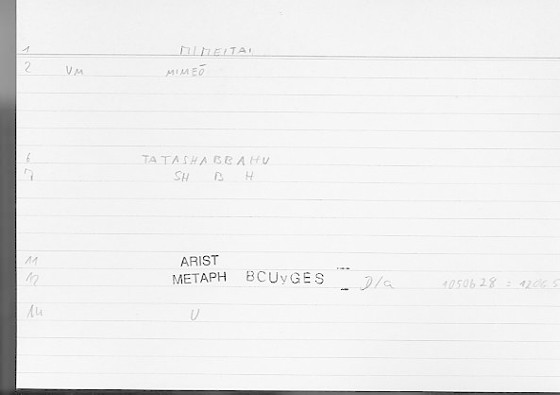 1 MIMEITAI
2 VM MIMEŌ
6 TATASHABBAHU
7 SH B H
11 ARIST
12 METAPH BCUyGES D/a 1050b28 = 1206.5
14 U